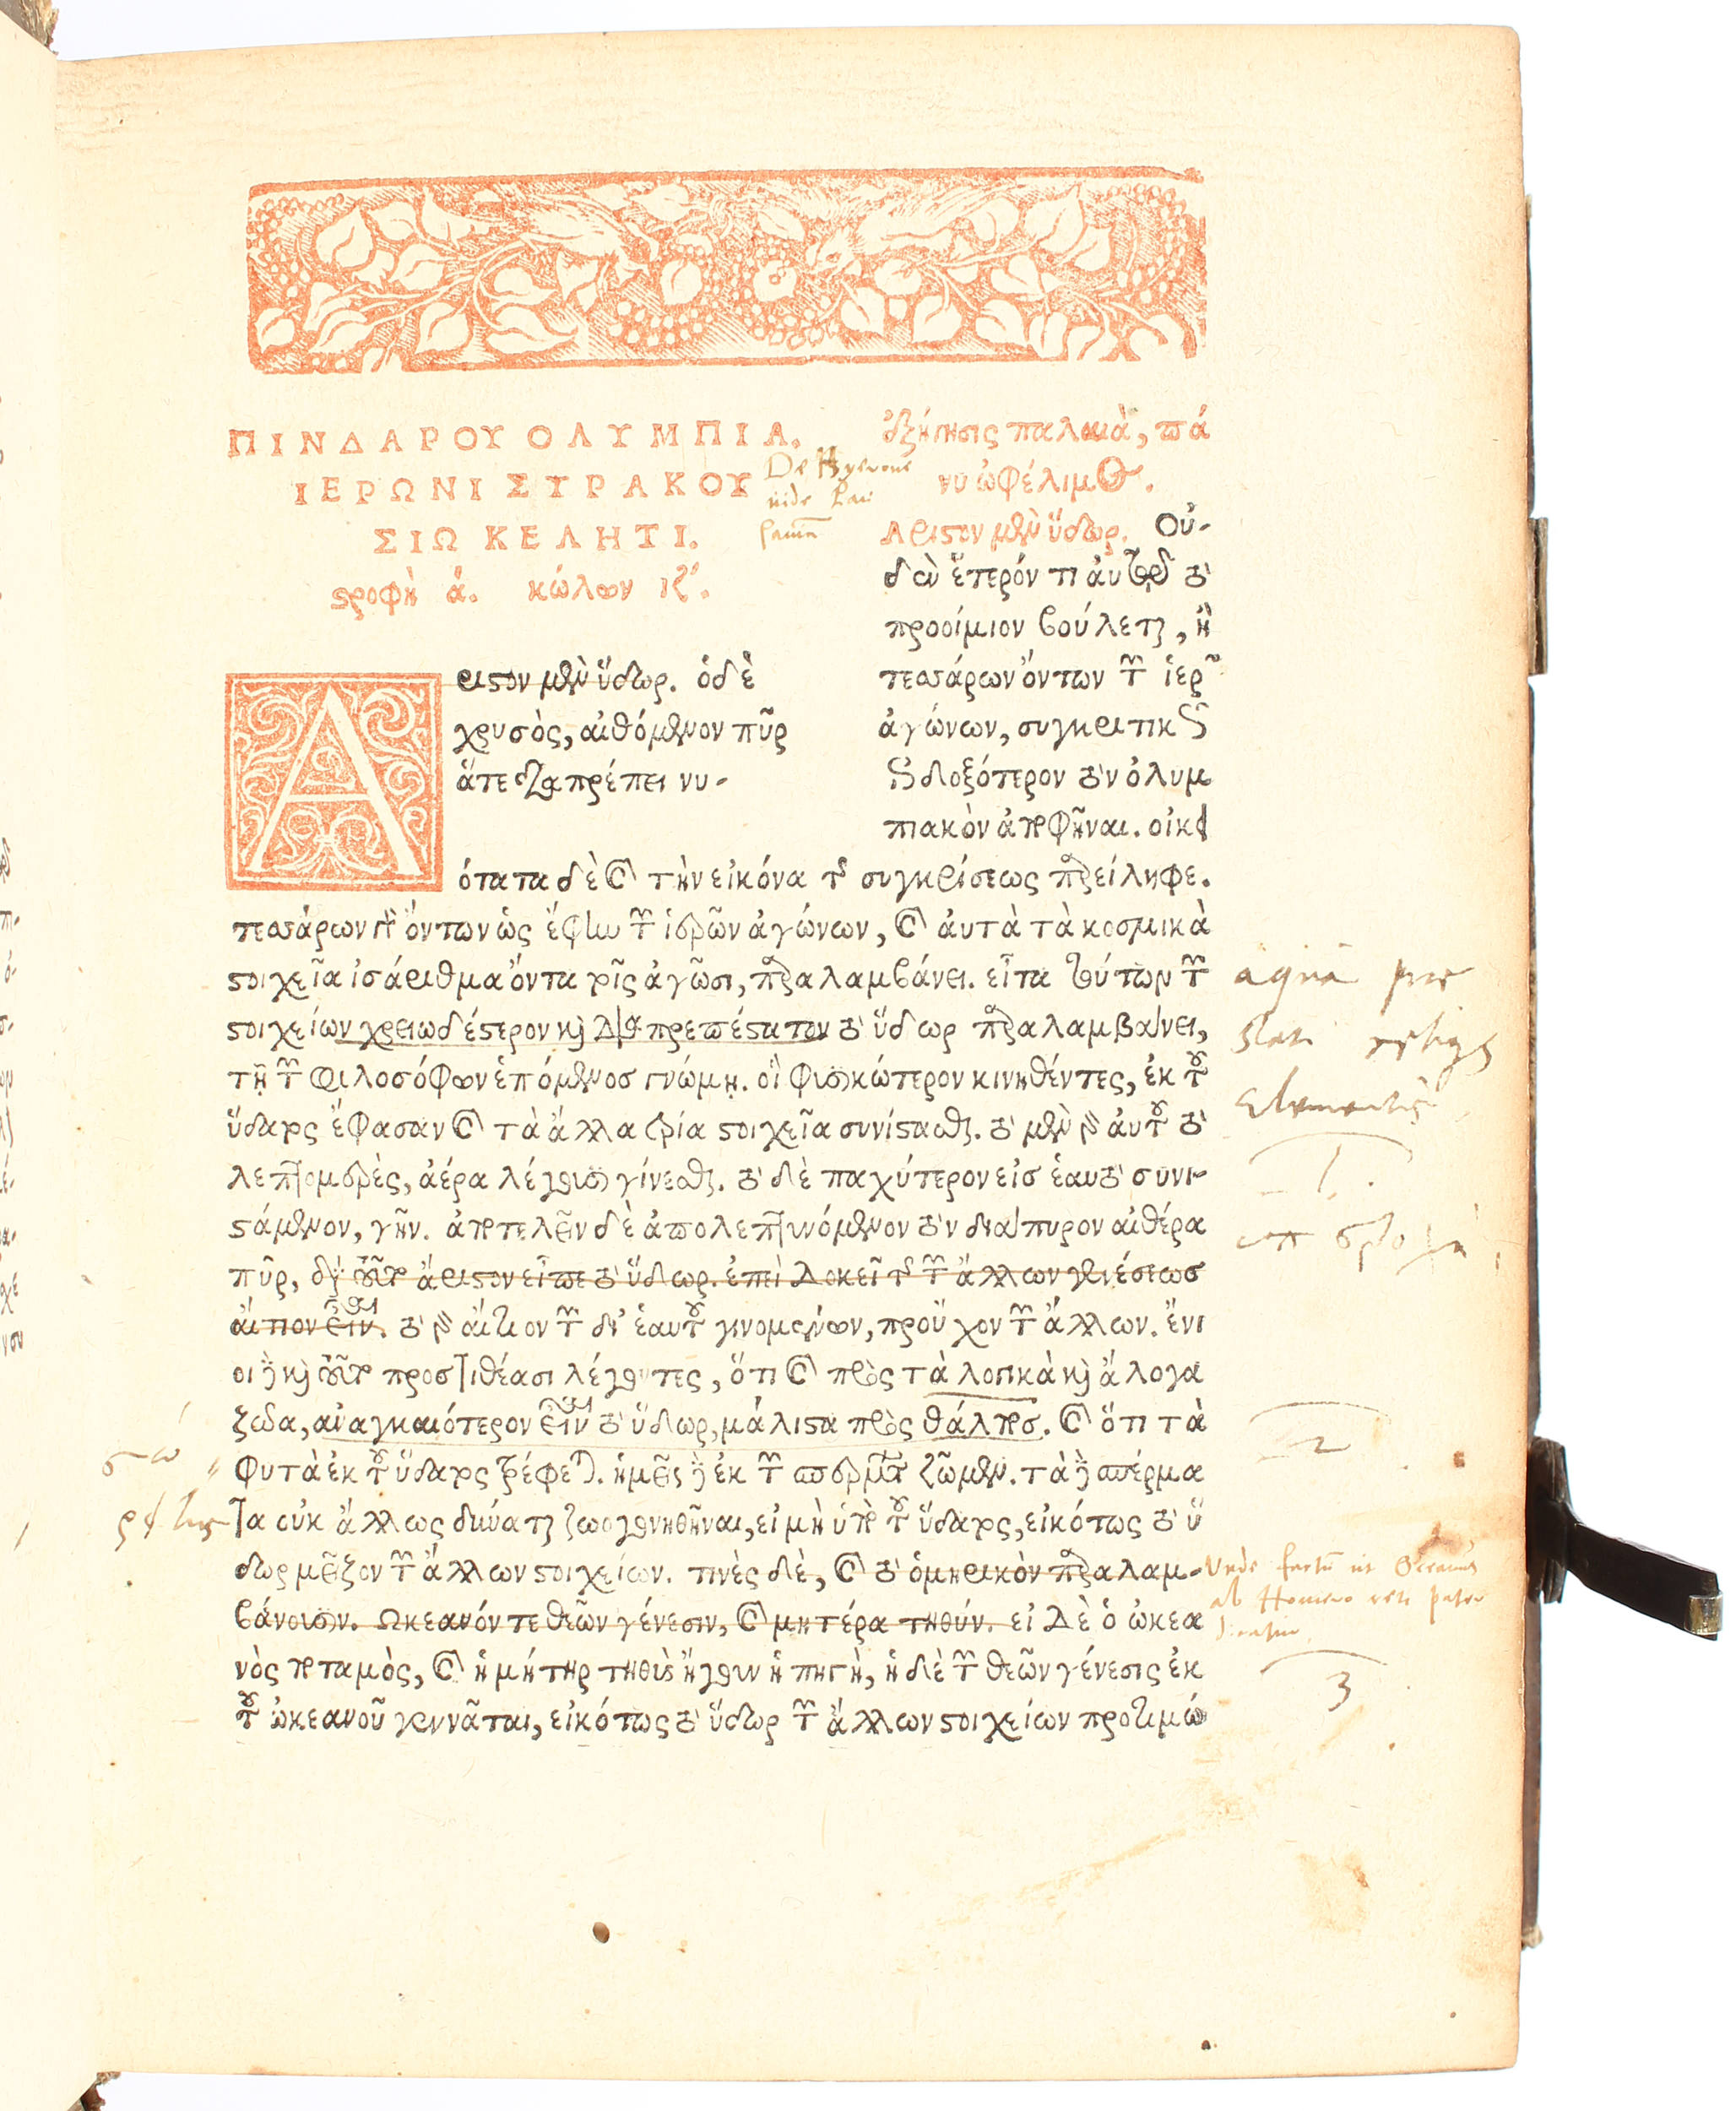 ΠΙΝΔΑΡΟΥ ΟΛΥΜΠΙΑ.
ΙΕΡΩΝΙ ΣΥΡΑΚΟΥ
ΣΙΩ ΚΕΛΗΤΙ.
ϛροφὴ ά. κώλων ιζ´.
De Hyerone
uide
Αριϛον μὲν ὕδωρ. ὁ δὲ
χρυσὸς, αἰθόμενον πῦρ
ἅτε διαπρέπει νυ-
ἐξήγησις παλαιὰ, πά
νυ ὠφέλιμος.
Αριϛον μὲν ὕδωρ. Οὐ-
δὲν ἕτερόν τι ἀυτῷ τὸ
προοίμιον βούλεται, ἢ
τεσσάρων ὄντων τῶν ἱερῶν
ἀγώνων, συγκριτικῶς
ἐνδοξότερον τὸν ὀλυμ
πιακὸν ἀποφῆναι. οἰκει
ότατα δὲ καὶ τὴν εἰκόνα τῆς συγκρίσεως παρείληφε.
τεσσάρων γὰρ ὄντων ὡς ἔφην τῶν ἱερῶν ἀγώνων, καὶ ἀυτὰ τὰ κοσμικὰ
ϛοιχεῖα ἰσάριθμα ὄντα τοῖς ἀγῶσι, παραλαμβάνει. εἶτα τούτων τῶν
ϛοιχείων χρειωδέϛερον καὶ διαπρεπέϛατον τὸ ὕδωρ παραλαμβάνει,
τῇ τῶν φιλοσόφων ἑπόμενοσ γνώμῃ. οἳ φυσικώτερον κινηθέντες, ἐκ τοῦ
ὕδατος ἔφασαν καὶ τὰ ἄλλα τρία ϛοιχεῖα συνίϛασθαι. τὸ μὲν γὰρ ἀυτοῦ τὸ
λεπτομερὲς, ἀέρα λέγουσι γίνεσθαι. τὸ δὲ παχύτερον εἰσ ἑαυτὸ συνι-
ϛάμενον, γῆν. ἀποτελεῖν δὲ ἀπολεπτυνόμενον τὸν διάπυρον αἰθέρα
πῦρ, διὰ τοῦτο ἄριϛον εἶπε τὸ ὕδωρ. ἐπεὶ δοκεῖ τῆς τῶν ἄλλων γενέσεωσ
αἴτιον εἶναι. τὸ γὰρ αἴτιον τῶν δι᾽ ἑαυτοῦ γινομένων, προὔχον τῶν ἄλλων. ἔνι
οι δὲ καὶ τοῦτο προστιθέασι λέγοντες, ὅτι καὶ πρὸς τὰ λογικὰ καὶ ἄλογα
ζῶα, ἀναγκαιότερον εἶναι τὸ ὕδωρ, μάλιϛα πρὸς θάλποσ. καὶ ὅτι τὰ
φυτὰ ἐκ τοῦ ὕδατος τρέφεται. ἡμεῖς δὲ ἐκ τῶν σπερμάτων ζῶμεν. τὰ δὲ σπέρμα
τα οὐκ ἄλλως δύναται ζωογονηθῆναι, εἰ μὴ ὑπὸ τοῦ ὕδατος, εἰκότως τὸ ὕ
δωρ μεῖζον τῶν ἄλλων ϛοιχείων. τινὲς δὲ, καὶ τὸ ὁμηρικὸν παραλαμ-
βάνουσιν. Ωκεανόν τε θεῶν γένεσιν, καὶ μητέρα τηθύν. εἰ δὲ ὁ ὠκεα
νὸς ποταμὸς, καὶ ἡ μήτηρ τηθὺς ἤγουν ἡ πηγὴ, ἡ δὲ τῶν θεῶν γένεσις ἐκ
τοῦ ὠκεανοῦ γεννᾶται, εἰκότως τὸ ὕδωρ τῶν ἄλλων ϛοιχείων προτιμώ
aqua
elementis
1.
2
Unde
ab Homero
3